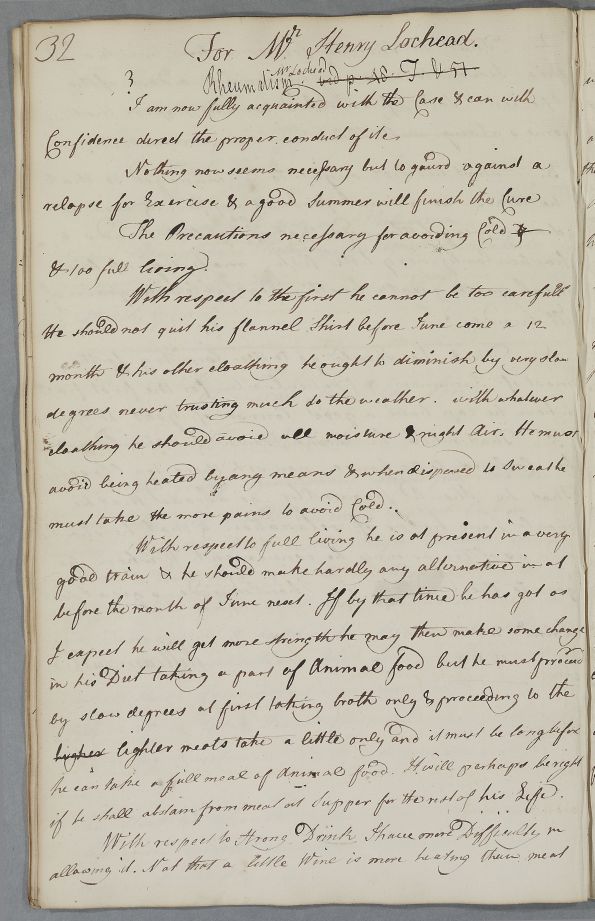 32
For Mr Henry Lochead.
3
Rheumatism Mr Lochead vid p. 48 T. & 51
I am now fully acquainted with the Case & can with
Confidence direct the proper conduct of it
Nothing now seems necessary but to gaurd against a
relapse for Exercise & a good Summer will finish the Cure
The Precautions necessary for avoiding Cold
& too full living.
With respect to the first he cannot be too carefull
He should not quit his flannel Shirt before June come a 12
month & his other cloathing he ought to diminish by very slow
degrees never trusting much to the weather. with whatever
cloathing he should avoid all moisture & night Air. He must
avoid being heated by any means & when disposed to Sweat he
must take the more pains to avoid Cold..
With respect to full living he is at present in a very
good train & he should make hardly any alternative in it
before the month of June next. If by that time he has got as
I expect he will get more strength he may then make some change
in his Diet taking a part of Animal food but he must proceed
by slow degrees at first taking broth only & proceeding to the
higher lighter meats take a little only and it must be long before
he can take a full meal of Animal food. It will perhaps be right
if he shall abstain from meat at Supper for the rest of his Life.
With respect to Strong Drink I have more Difficulty in
allowing it. Not that a little Wine is more heating than meat